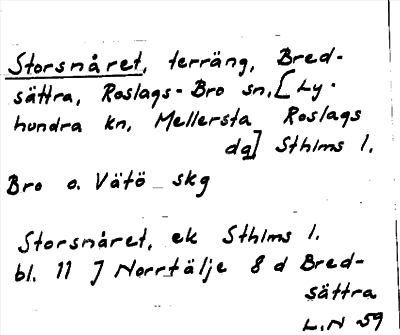 Storsnåret, terräng, Bred-
sättra, Roslags-Bro sn, [Ly-
hundra kn, Mellersta Roslags
dg] Sthlms l.
Bro o. Vätö skg
Storsnåret, ek Sthlms l.
bl. 11 J Norrtälje 8 d Bred-
sättra
L.N 59